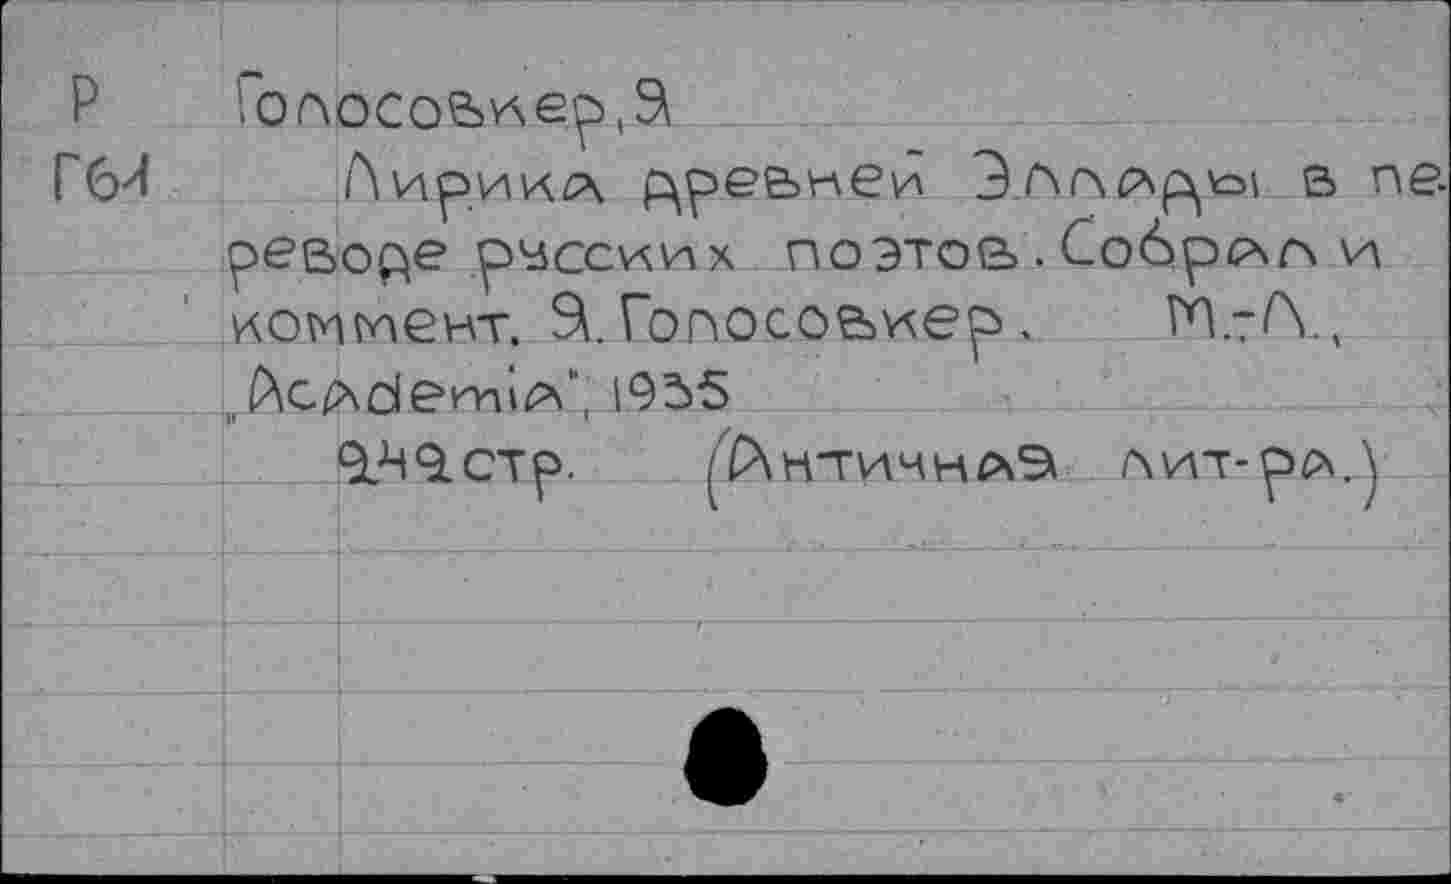 Р Голосовкер, Я
Г61 Лирика древней Эллады в пе-
реводе русских поэтов. Собрал и
коммент. Я. Голосовкер. М.-Л.,
„Academia", 1935
стр. (Античная лит-ра.)